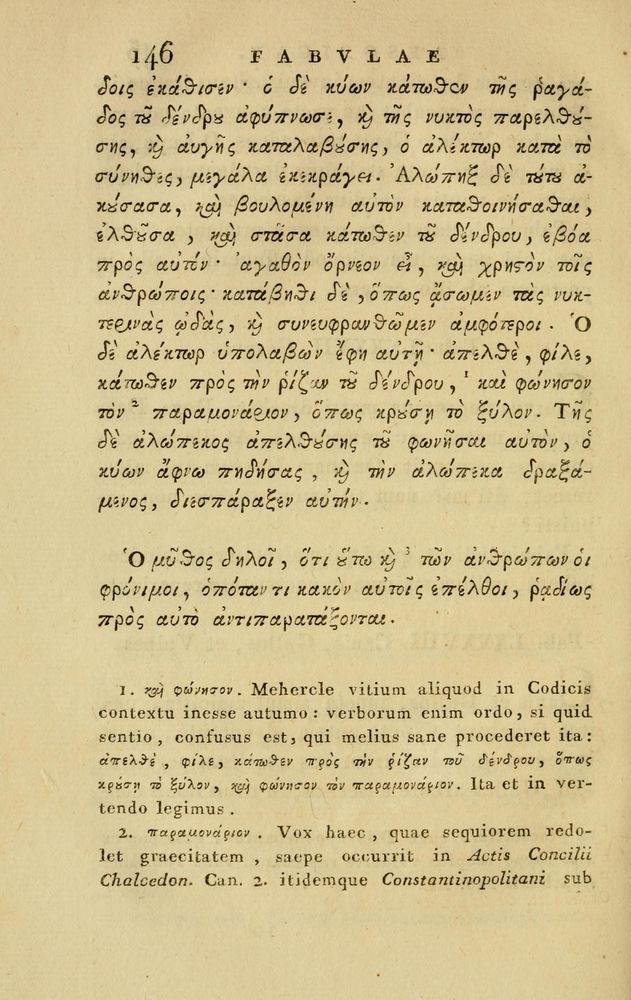 146 FABVLAE
δοις ἐκάθισεν· ὁ δὲ κύων κάτωθεν τῆς ῥαγά-
δος τοῦ δένδρου ἀφύπνωσε, καὶ τῆς νυκτὸς παρελθού-
σης, καὶ αὐγῆς καταλαβούσης, ὁ ἀλέκτωρ κατὰ τὸ
σύνηθες, μεγάλα ἐκεκράγει. Ἀλώπηξ δὲ τούτου ἀ-
κούσασα, καὶ βουλομένη αὐτὸν καταθοινήσασθαι,
ἐλθοῦσα, καὶ στᾶσα κάτωθεν τοῦ δένδρου, ἐβόα
πρὸς αὐτόν· ἀγαθὸν ὄρνεον εἶ, καὶ χρηστὸν τοῖς
ἀνθρώποις· κατάβηθι δὲ, ὅπως ᾄσωμεν τὰς νυκ-
τερινὰς ᾠδὰς, καὶ συνευφρανθῶμεν ἀμφότεροι. Ὁ
δὲ ἀλέκτωρ ὑπολαβὼν ἔφη αὐτῇ· ἄπελθὲ, φίλε,
κάτωθεν πρὸς τὴν ῥίζαν τοῦ δένδρου, ¹ καὶ φώνησον
τὸν ² παραμονάριον, ὅπως κρούσῃ τὸ ξύλον. Τῆς
δὲ ἀλώπεκος ἀπελθούσης τοῦ φωνῆσαι αὐτὸν, ὁ
κύων ἄφνω πηδήσας, καὶ τὴν ἀλώπεκα δραξά-
μενος, διεσπάραξεν αὐτήν.
Ὁ μῦθος δηλοῖ, ὅτι οὕτω καὶ ³ τῶν ἀνθρώπων οἱ
φρόνιμοι, ὁπόταν τι κακὸν αὐτοῖς ἐπέλθοι, ῥᾳδίως
πρὸς αὐτὸ ἀντιπαρατάξονται.
1. καὶ φώνησον. Mehercle vitium aliquod in Codicis
contextu inesse autumo: verborum enim ordo, si quid
sentio, confusus est, qui melius sane procederet ita:
ἄπελθὲ, φίλε, κάτωθεν πρὸς τὴν ῥίζαν τοῦ δένδρου, ὅπως
κρούσῃ τὸ ξύλον, καὶ φώνησον τὸν παραμονάριον. Ita et in ver-
tendo legimus.
2. παραμονάριον. Vox haec, quae sequiorem redo-
let graecitatem, saepe occurrit in Actis Concilii
Chalcedon. Can. 2. itidemque Constantinopolitani sub